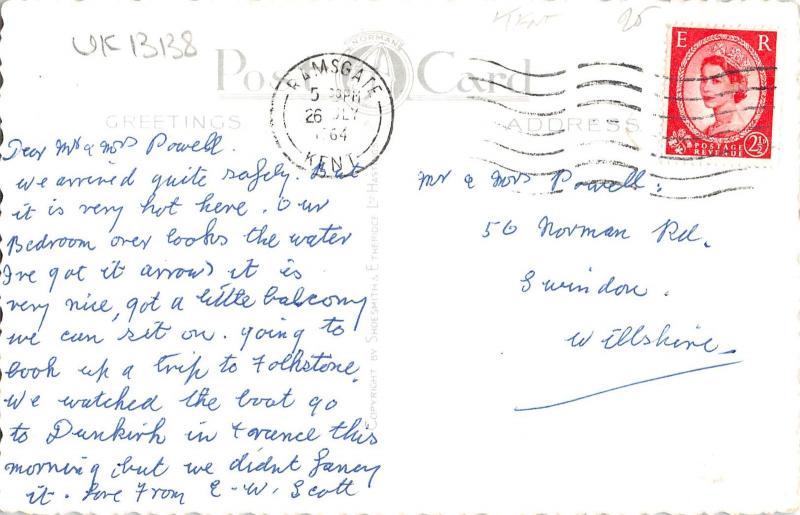 UK 1313B
KENT
25
NORMANS
Post Card
GREETINGS
ADDRESS
RAMSGATE
5 PM
26 JLY
1964
KENT
E R
POSTAGE REVENUE
2½D
Dear Mr & Mrs Powell.
we arrived quite safely. But
it is very hot here. Our
Bedroom over looks the water
I've got it arrow) it is
very nice, got a little balcony
we can sit on. going to
book up a trip to Folkstone.
We watched the boat go
to Dunkirk in France this
morning, but we didnt fancy
it. Love From E. W. Scott
COPYRIGHT BY SHOESMITH & ETHERIDGE LTD HASTINGS
Mr & Mrs Powell:
56 Norman Rd.
Swindon.
Willshire